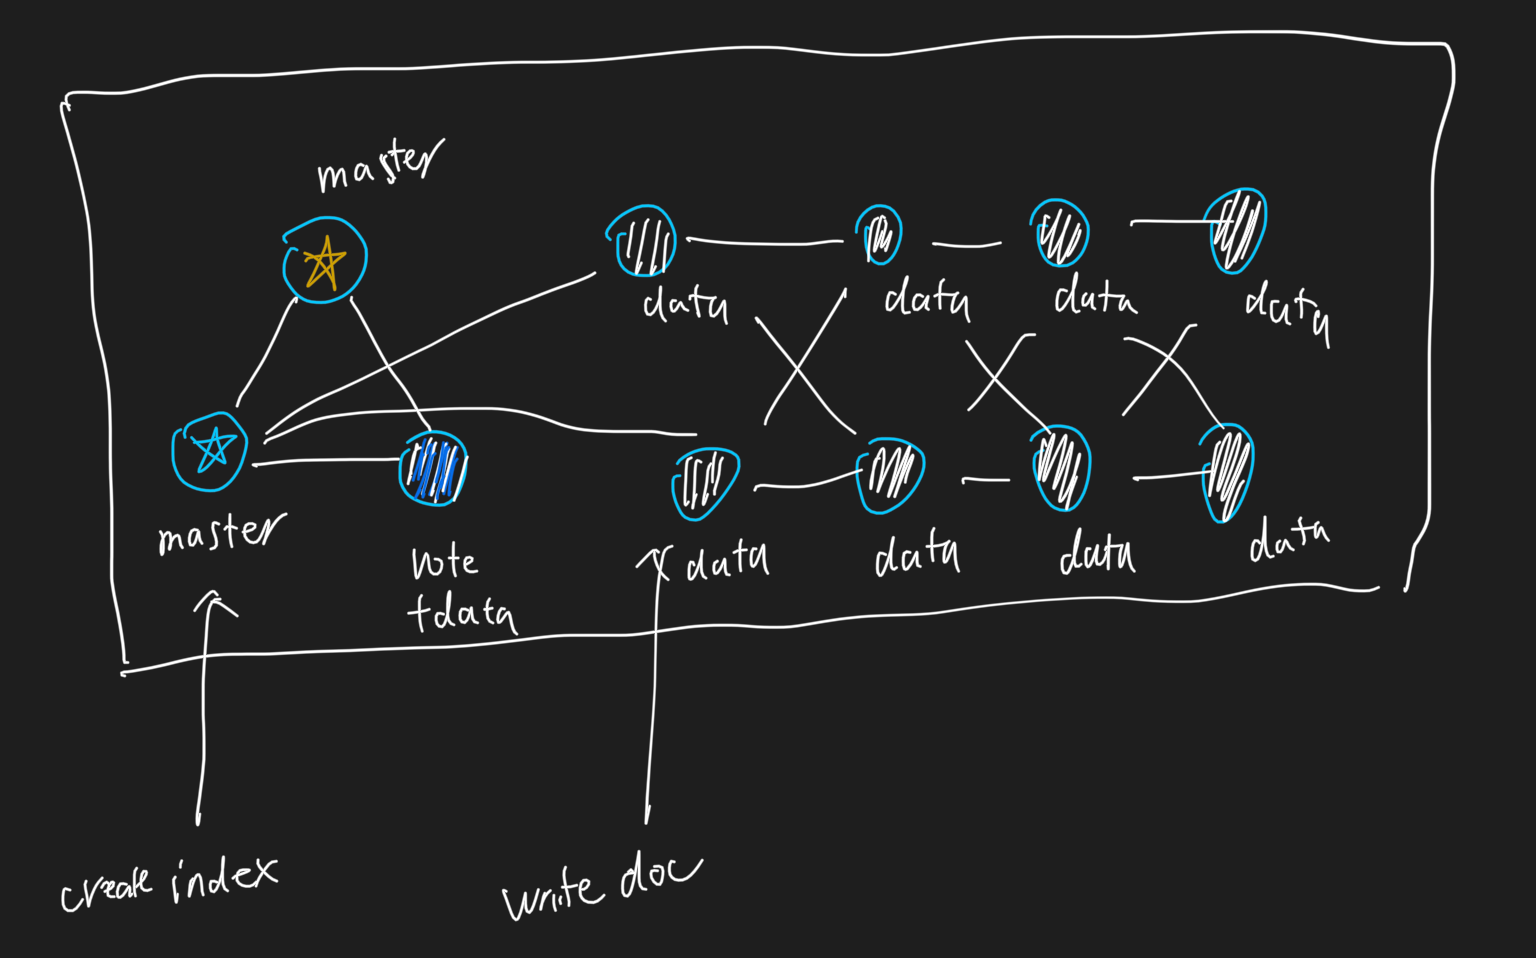 master
data
data
data
data
master
vote
+data
data
data
data
data
create index
write doc